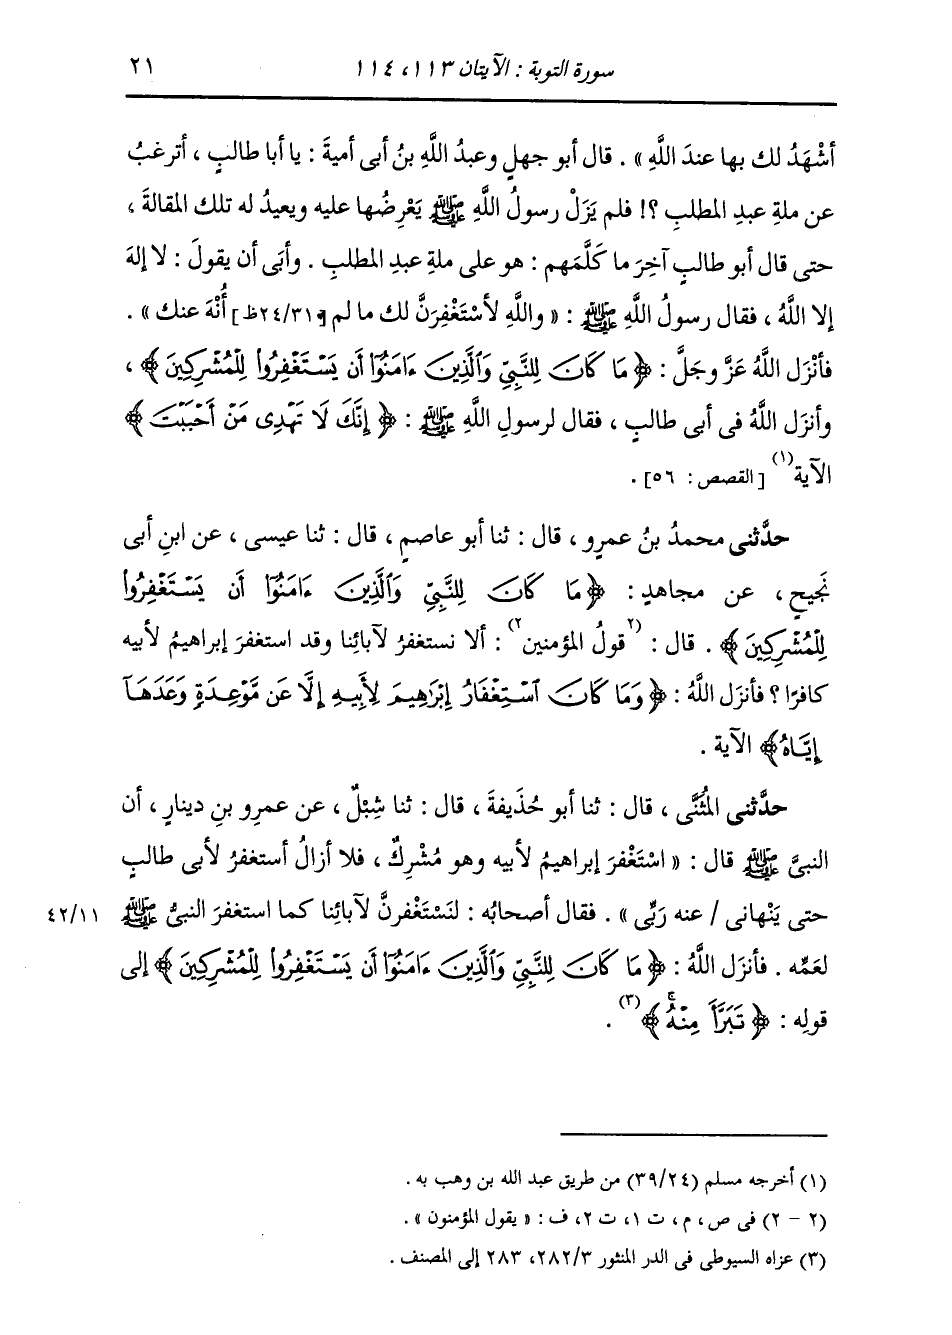 سورة التوبة : الآيتان ١١٣، ١١٤
٢١
أشْهَدُ لك بها عندَ اللَّهِ » . قال أبو جهلٍ وعبدُ اللَّهِ بنُ أبى أميةَ : يا أبا طالبٍ ، أترغبُ
عن ملةِ عبدِ المطلبِ ؟! فلم يَزَلْ رسولُ اللَّهِ ﷺ يَعْرِضُها عليه ويعيدُ له تلك المقالةَ ،
حتى قال أبو طالبٍ آخِرَ ما كَلَّمَهم : هو على ملةِ عبدِ المطلبِ . وأبَى أن يقولَ : لا إلهَ
إلا اللَّهُ ، فقال رسولُ اللَّهِ ﷺ : « واللَّهِ لأسْتَغْفِرَنَّ لك ما لم [٢٤/٣١ظ] أُنْهَ عنك » .
فأنْزَل اللَّهُ عَزَّ وجَلَّ : ﴿ مَا كَانَ لِلنَّبِيِّ وَٱلَّذِينَ ءَامَنُوٓا۟ أَن يَسْتَغْفِرُوا۟ لِلْمُشْرِكِينَ ﴾ ،
وأنزَل اللَّهُ فى أبى طالبٍ ، فقال لرسولِ اللَّهِ ﷺ : ﴿ إِنَّكَ لَا تَهْدِى مَنْ أَحْبَبْتَ ﴾
الآية(١) [القصص: ٥٦] .
حدَّثنى محمدُ بنُ عمرٍو ، قال : ثنا أبو عاصمٍ ، قال : ثنا عيسى ، عن ابنِ أبى
نَجيحٍ ، عن مجاهدٍ : ﴿ مَا كَانَ لِلنَّبِيِّ وَٱلَّذِينَ ءَامَنُوٓا۟ أَن يَسْتَغْفِرُوا۟
لِلْمُشْرِكِينَ ﴾ . قال : (٢قولُ المؤمنين٢) : ألا نستغفرُ لآبائِنا وقد استغفرَ إبراهيمُ لأبيه
كافرًا ؟ فأنزَل اللَّهُ : ﴿ وَمَا كَانَ ٱسْتِغْفَارُ إِبْرَٰهِيمَ لِأَبِيهِ إِلَّا عَن مَّوْعِدَةٍ وَعَدَهَآ
إِيَّاهُ ﴾ الآية .
حدَّثنى المُثَنَّى ، قال : ثنا أبو حُذَيفةَ ، قال : ثنا شِبْلٌ ، عن عمرِو بنِ دينارٍ ، أن
النبىَّ ﷺ قال : « اسْتَغْفرَ إبراهيمُ لأبيه وهو مُشْرِكٌ ، فلا أزالُ أستغفرُ لأبى طالبٍ
حتى يَنْهانى / عنه رَبِّى » . فقال أصحابُه : لنَسْتَغْفرنَّ لآبائِنا كما استغفرَ النبىُّ ﷺ
٤٢/١١
لعَمِّه . فأنزَل اللَّهُ : ﴿ مَا كَانَ لِلنَّبِيِّ وَٱلَّذِينَ ءَامَنُوٓا۟ أَن يَسْتَغْفِرُوا۟ لِلْمُشْرِكِينَ ﴾ إلى
قولِه : ﴿ تَبَرَّأَ مِنْهُ ۚ ﴾(٣) .
(١) أخرجه مسلم (٣٩/٢٤) من طريق عبد الله بن وهب به .
(٢ - ٢) فى ص، م، ت ١، ت ٢، ف : « يقول المؤمنون » .
(٣) عزاه السيوطى فى الدر المنثور ٢٨٢/٣، ٢٨٣ إلى المصنف .